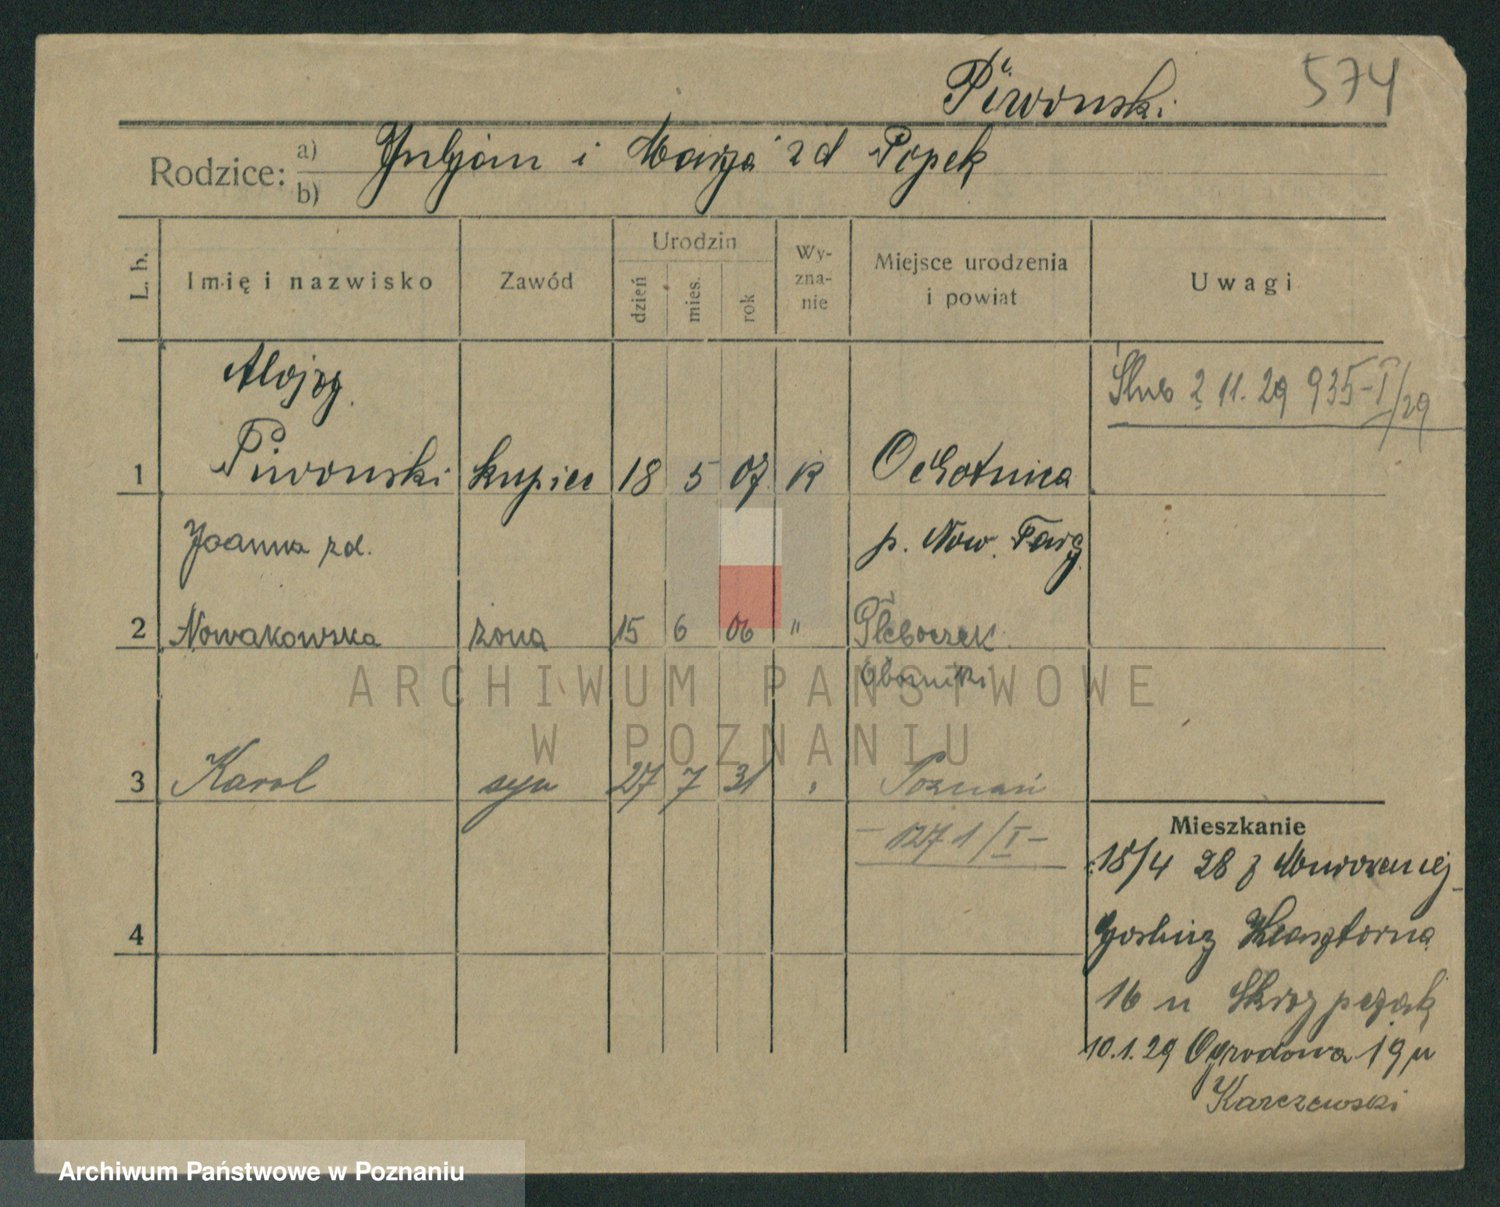 574
Piwonski.
Rodzice: a) Juljan i Marja zd Popek
b)
L. b.
Imię i nazwisko
Zawód
Urodzin
dzień
mies.
rok
Wy-
zna-
nie
Miejsce urodzenia
i powiat
Uwagi
Alojzy
Ślub 2 11. 29 935-I/29
1 Piwonski kupiec 18 5 07 K Ochotnica
Joanna zd. p. Now. Targ
2 Nowakowska żona 15 6 06 " Głeboczek
Oborniki
ARCHIWUM PAŃSTWOWE
W POZNANIU
3 Karol syn 27 7 31 " Poznań
- 1271/I -
Mieszkanie
15/4 28 z Murowanej
4
Gosliny Klasztorna
16 u Skrzypczak
10.1.29 Ogrodowa 19 u
Karczewski
Archiwum Państwowe w Poznaniu